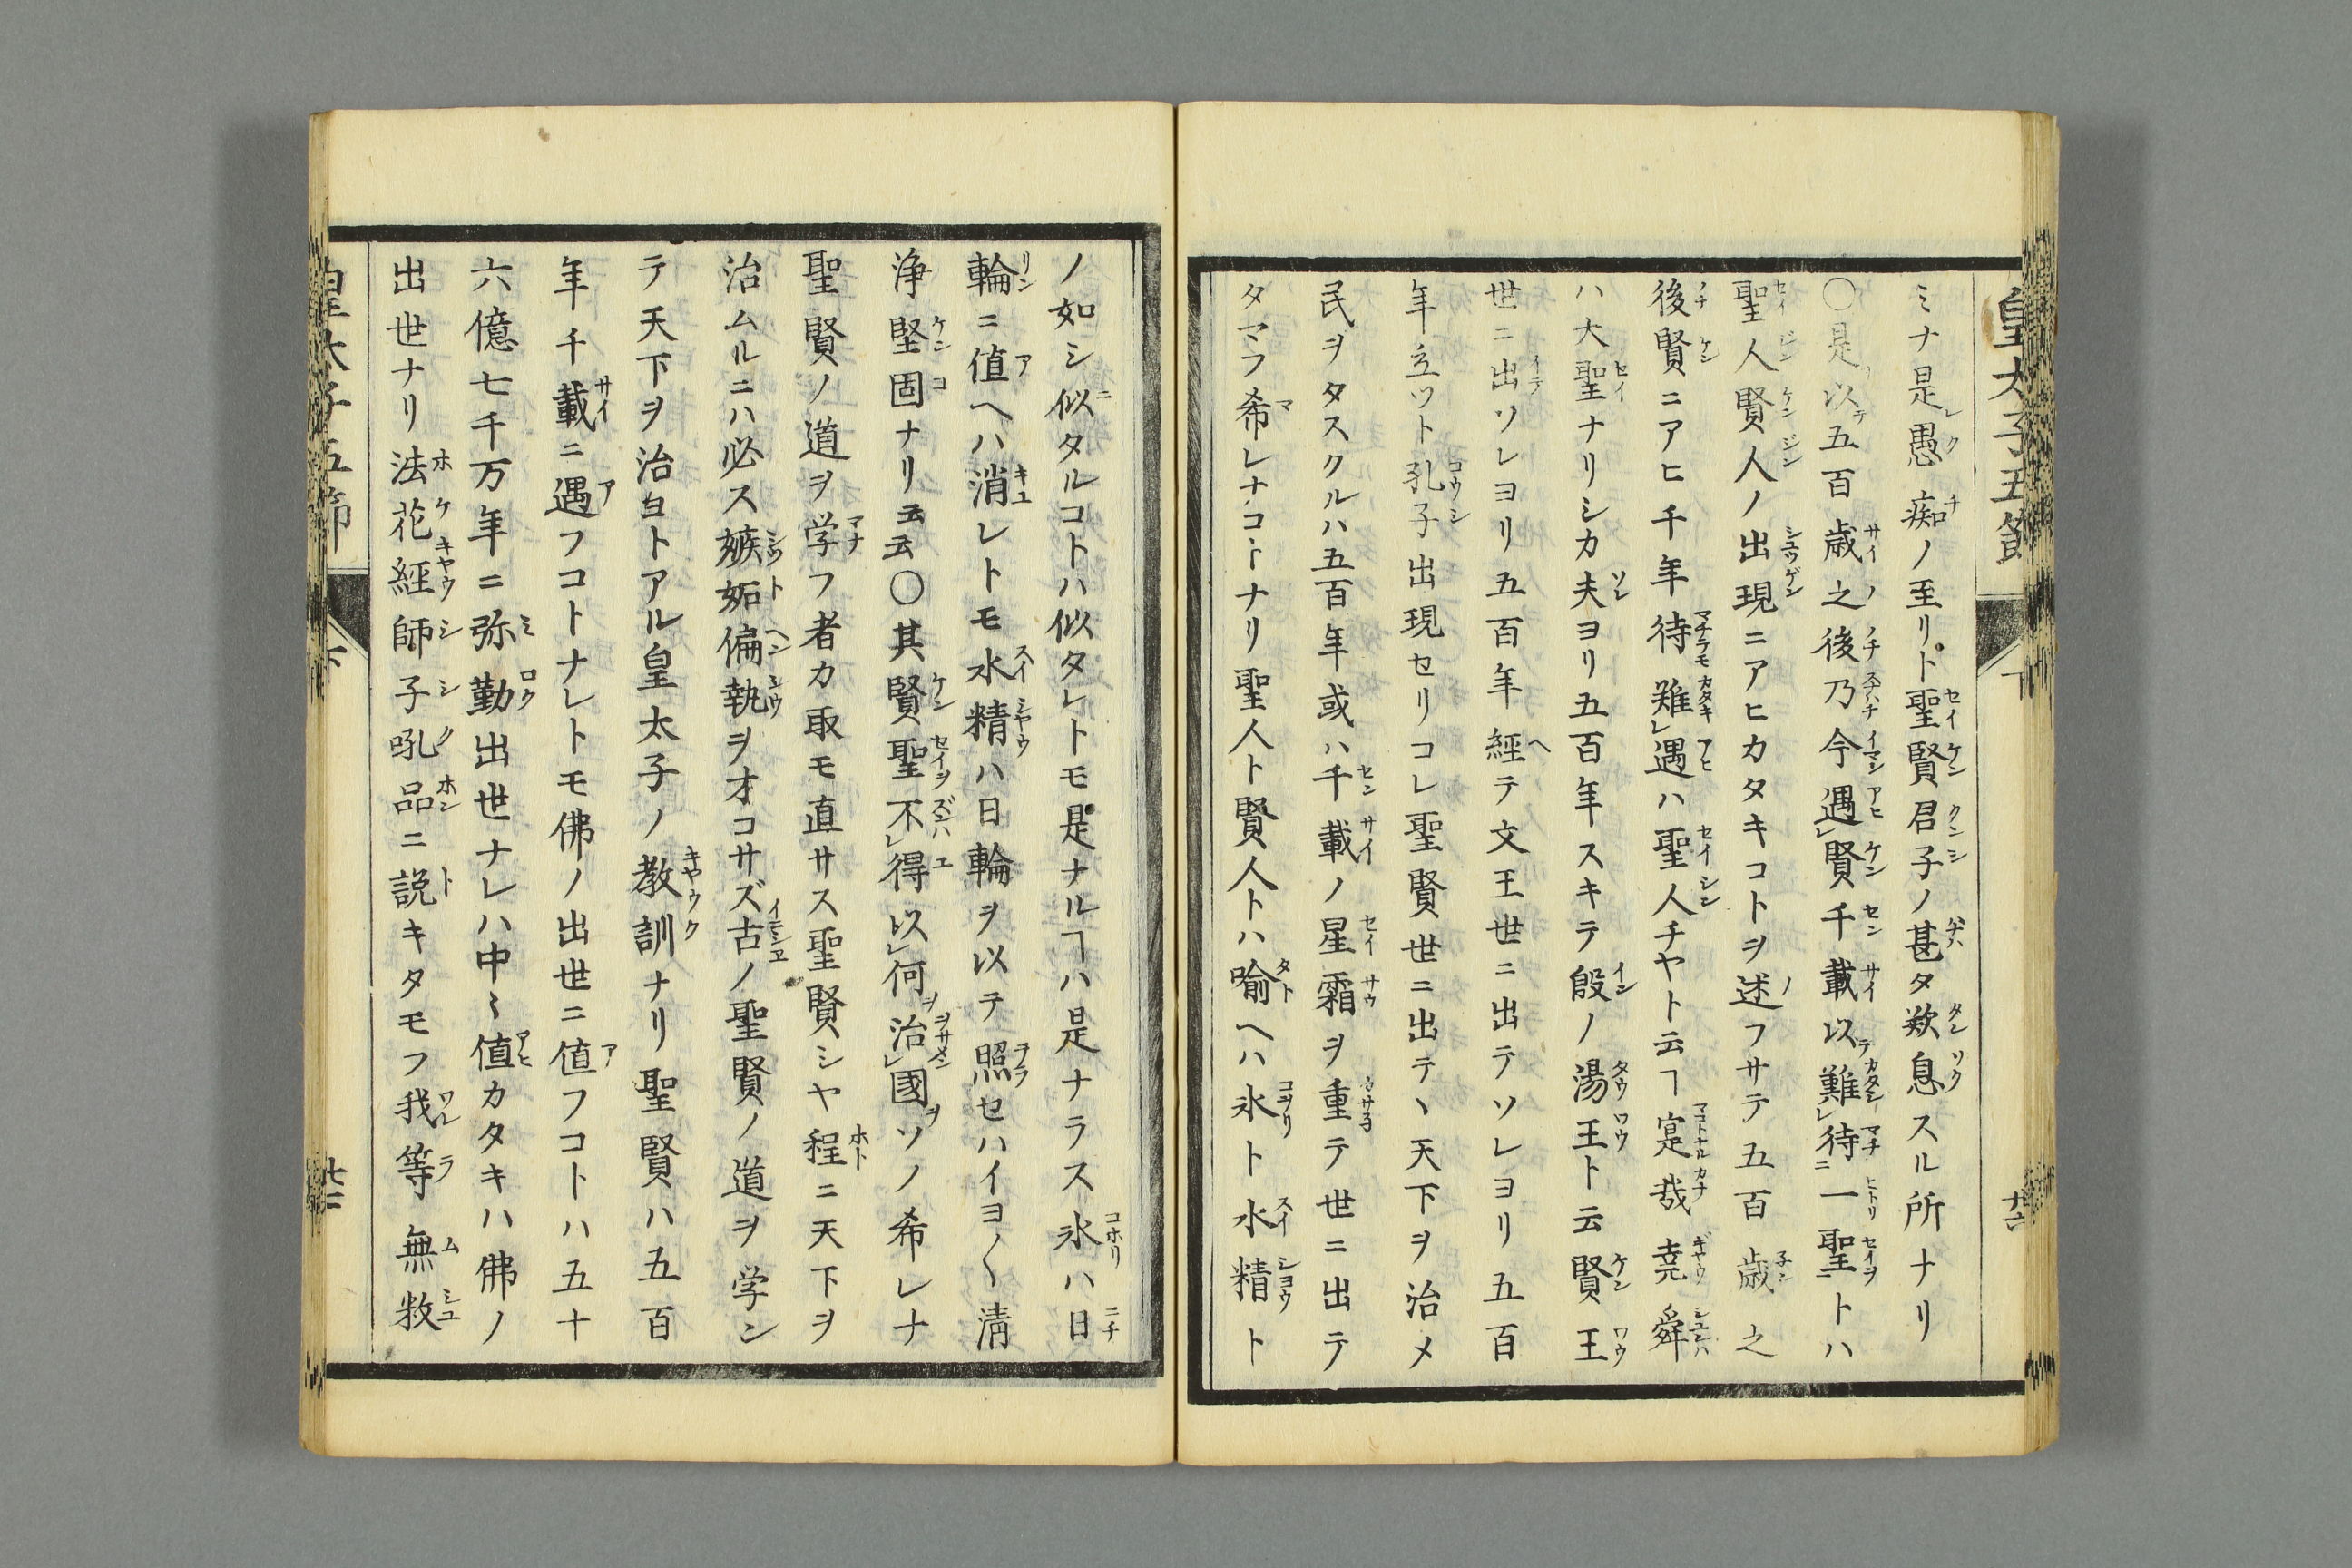 皇太子五節 下 廿六
ミナ是レ愚ク痴ノ至リト聖賢君子ノ甚タ歎息スル所ナリ
〇是以テ五百歳之後乃今遇レ賢千載以難レ待二一聖一トハ
聖人賢人ノ出現ニアヒカタキコトヲ述フサテ五百歳之
後賢ニアヒ千年待難レ遇ハ聖人チヤト云ヿ寔哉堯舜
ハ大聖ナリシカ夫ヨリ五百年スキテ殷ノ湯王ト云賢王
世ニ出ソレヨリ五百年經テ文王世ニ出テソレヨリ五百
年立ツト孔子出現セリコレ聖賢世ニ出テヽ天下ヲ治メ
民ヲタスクルハ五百年或ハ千載ノ星霜ヲ重テ世ニ出テ
タマフ希レナコトナリ聖人ト賢人トハ喻ヘハ氷ト水精ト
ノ如シ似タルコトハ似タレトモ是ナルヿハ是ナラス氷ハ日
輪ニ値ヘハ消レトモ水精ハ日輪ヲ以テ照セハイヨ〱清
浄堅固ナリ云云〇其賢聖不レ得以レ何治レ國ソノ希レナ
聖賢ノ道ヲ学フ者カ取モ直サス聖賢シヤ程ニ天下ヲ
治ムルニハ必ス嫉妬偏執ヲオコサズ古ノ聖賢ノ道ヲ学ン
テ天下ヲ治ヨトアル皇太子ノ教訓ナリ聖賢ハ五百
年千載ニ遇フコトナレトモ佛ノ出世ニ値フコトハ五十
六億七千万年ニ弥勤出世ナレハ中〻値カタキハ佛ノ
出世ナリ法花經師子吼品ニ説キタモフ我等無数
皇太子五節 下